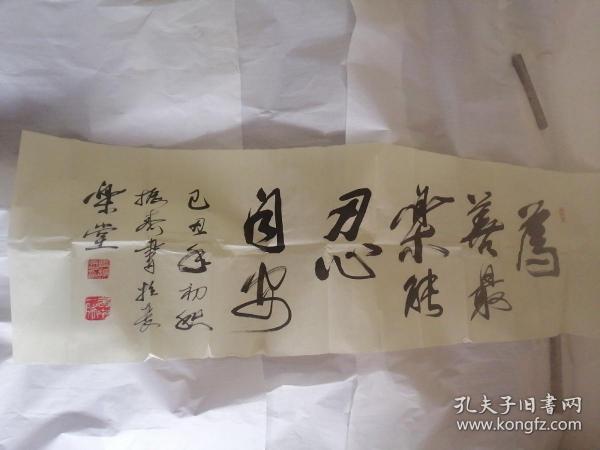 為
善最
樂能
忍
自安
己丑年初秋
振
書於長
樂堂
孔夫子旧书网
www.kongfz.com